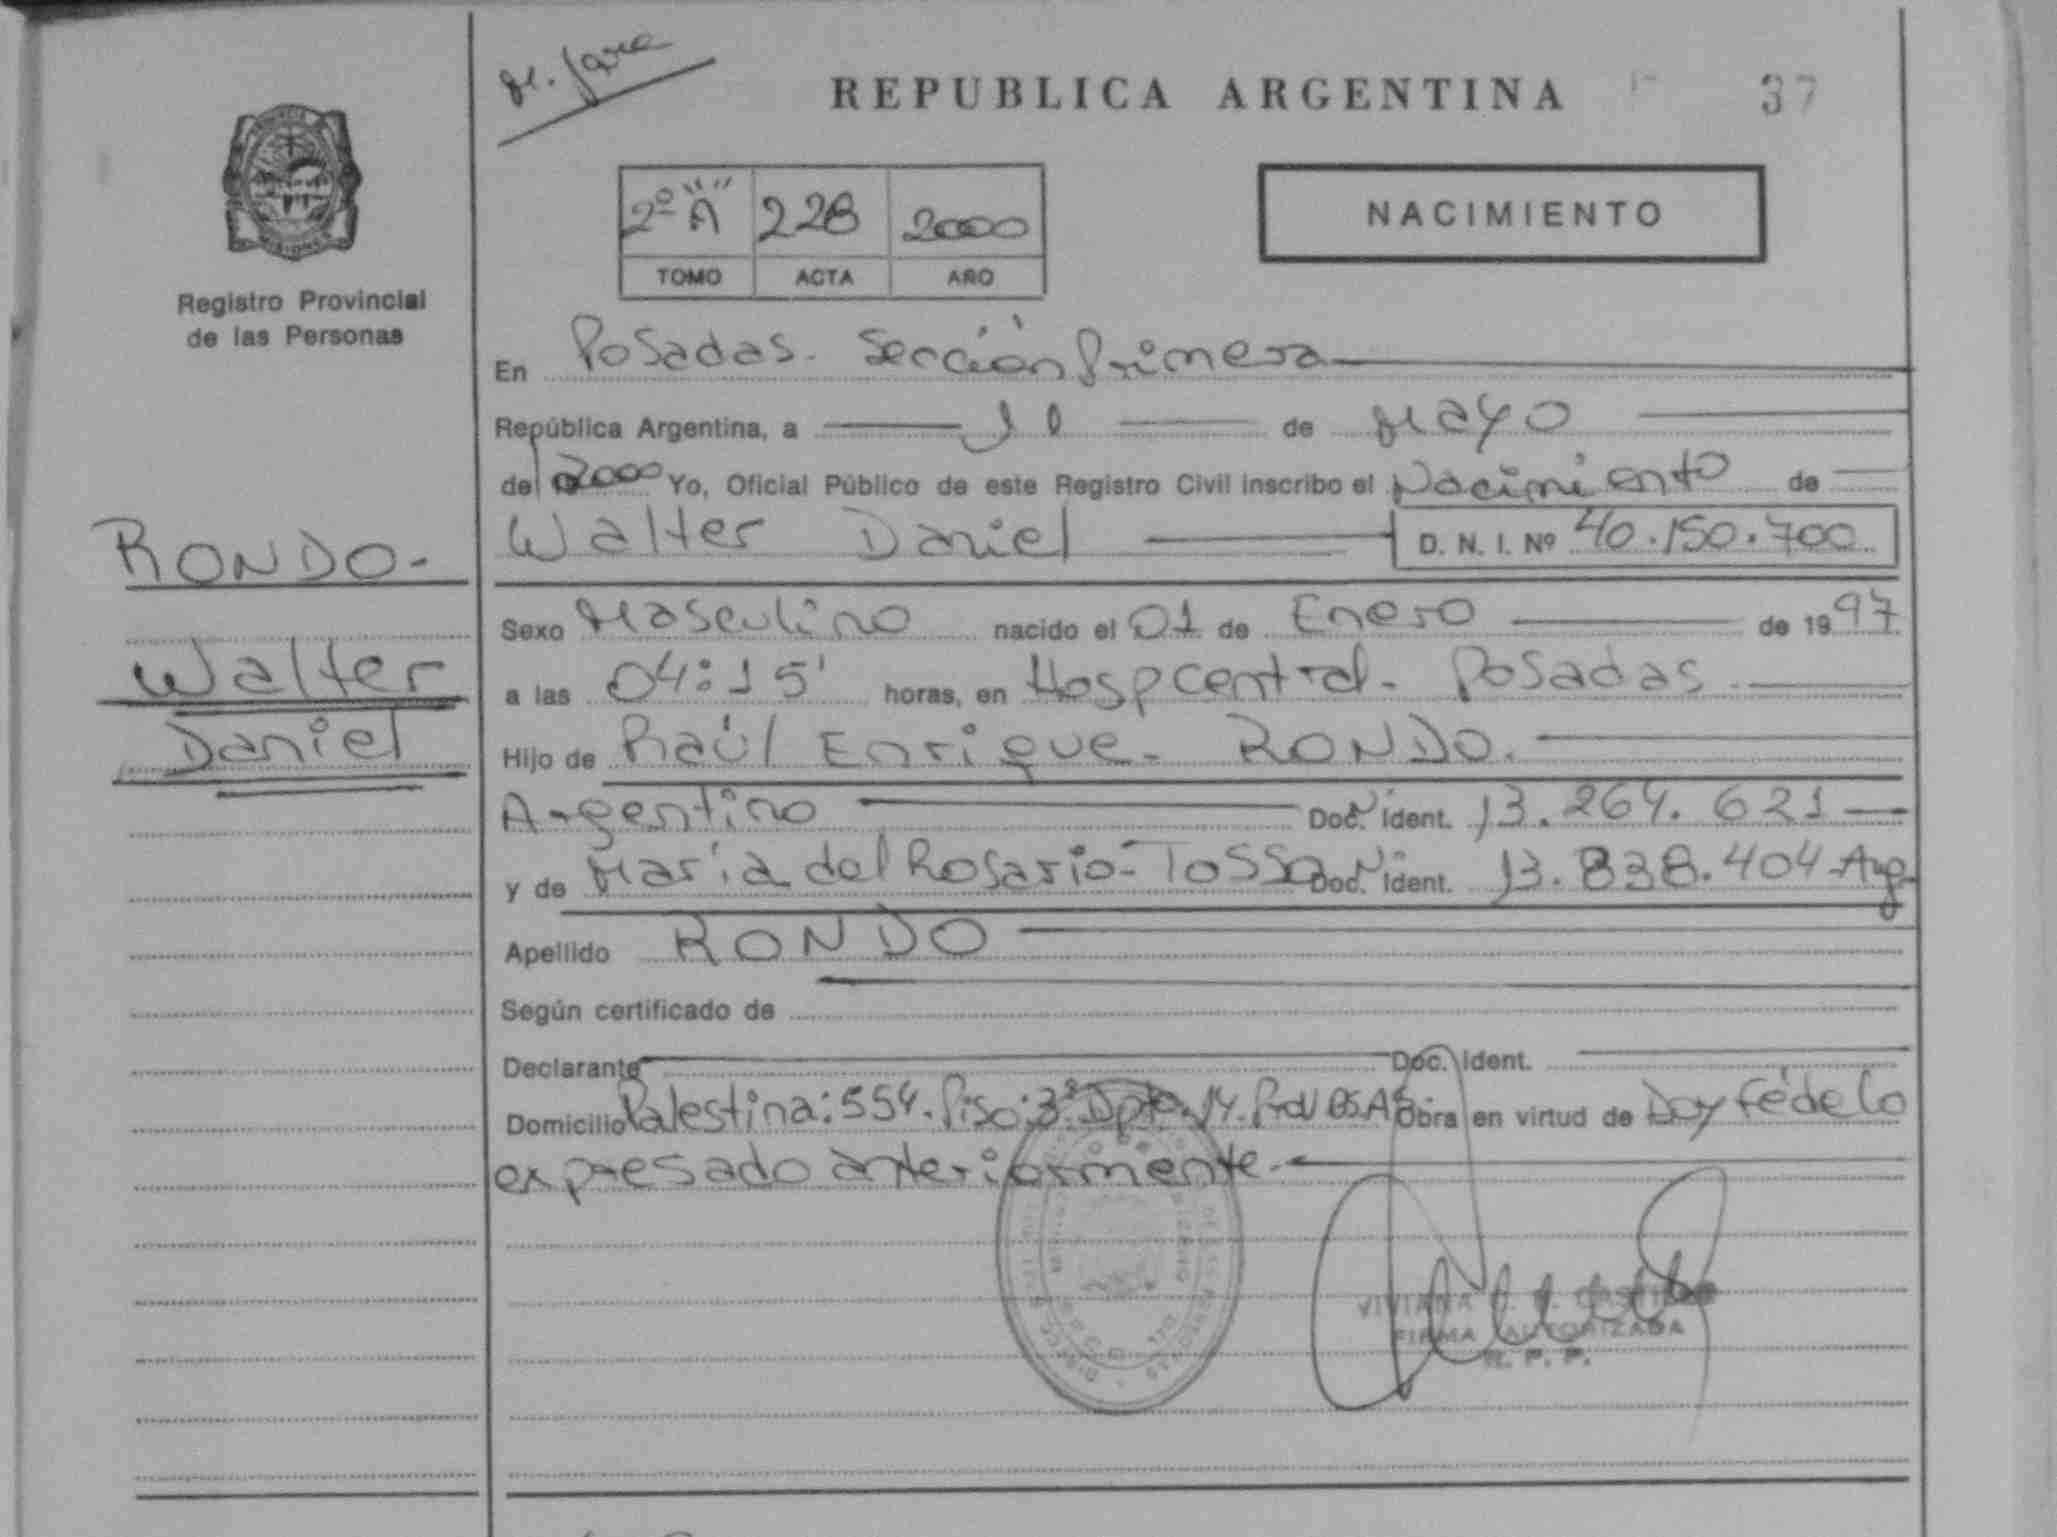 REPUBLICA ARGENTINA
37
Registro Provincial
de las Personas
2º "A" 228 2000
TOMO ACTA AÑO
NACIMIENTO
En Posadas. Sección Primera
República Argentina, a de Mayo
de 2000 Yo, Oficial Público de este Registro Civil inscribo el Nacimiento de
Walter Daniel D. N. I. Nº 40.150.700
RONDO.
Walter
Daniel
Sexo Masculino nacido el 01 de Enero de 1997
a las 04:15' horas, en Hosp Central. Posadas
Hijo de Raúl Enrique. RONDO.
Argentino Doc. Ident. 13.264.621
y de María del Rosario Tossa Doc. Ident. 13.838.404 Arg.
Apellido RONDO
Según certificado de
Declarante Doc. Ident.
Domicilio Palestina: 554. Piso: 3º Dpto. 14. Prov Bs.As. Obra en virtud de Doy fé de lo
expresado anteriormente.
VIVIANA
FIRMA AUTORIZADA
R. P. P.